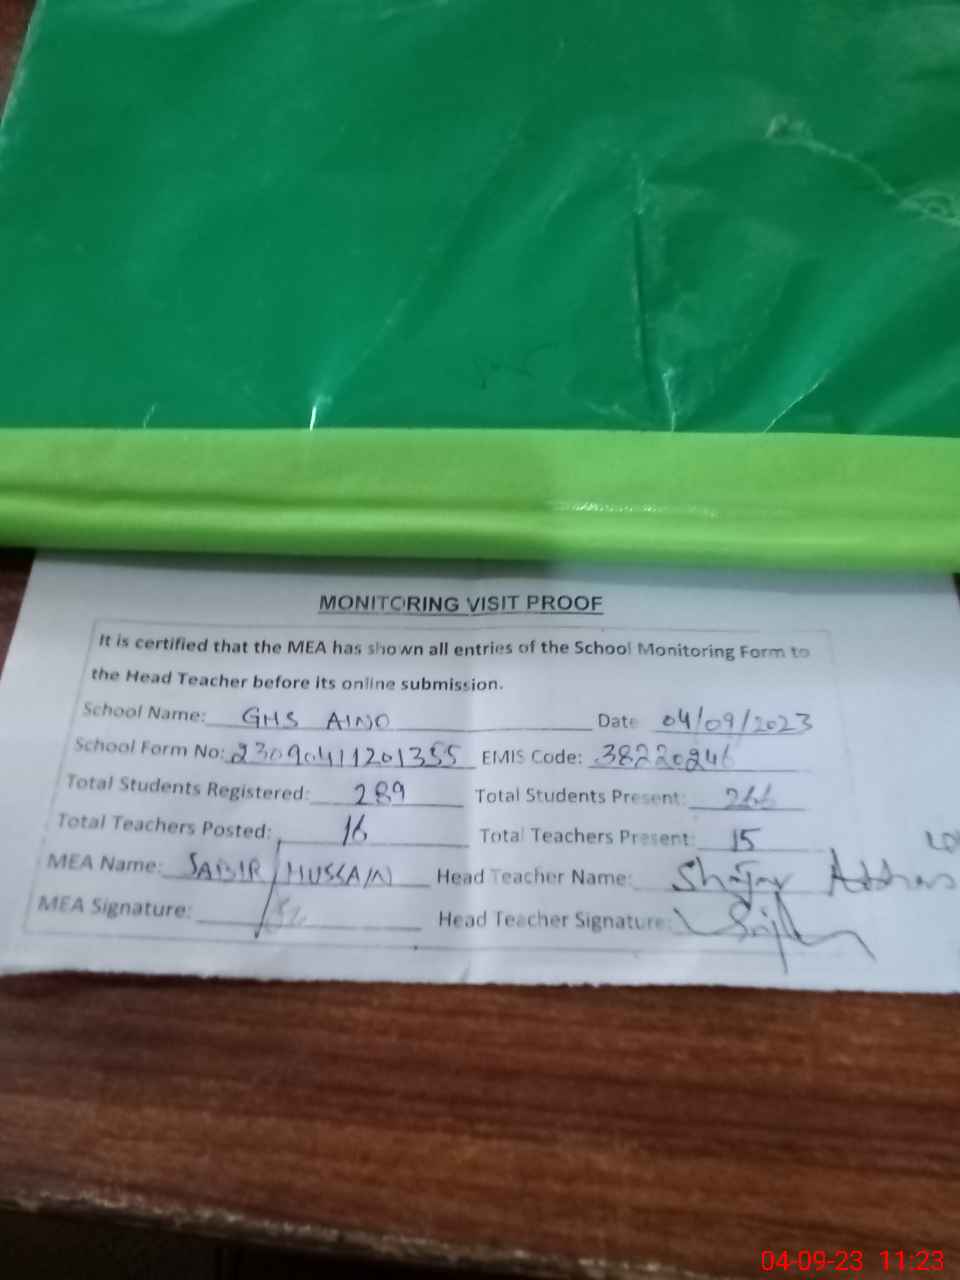 MONITORING VISIT PROOF
It is certified that the MEA has shown all entries of the School Monitoring Form to
the Head Teacher before its online submission.
School Name: GHS AINO Date 04/09/2023
School Form No: 23090411201355 EMIS Code: 38220246
Total Students Registered: 289 Total Students Present: 266
Total Teachers Posted: 16 Total Teachers Present: 15
MEA Name: SABIR HUSSAIN Head Teacher Name:
MEA Signature: Head Teacher Signature:
04-09-23 11:23